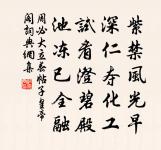 紫禁風光早
深仁夲化工
試看澄碧殿
池冻已全融
周必大立春帖子皇帝
閣詞興綱集